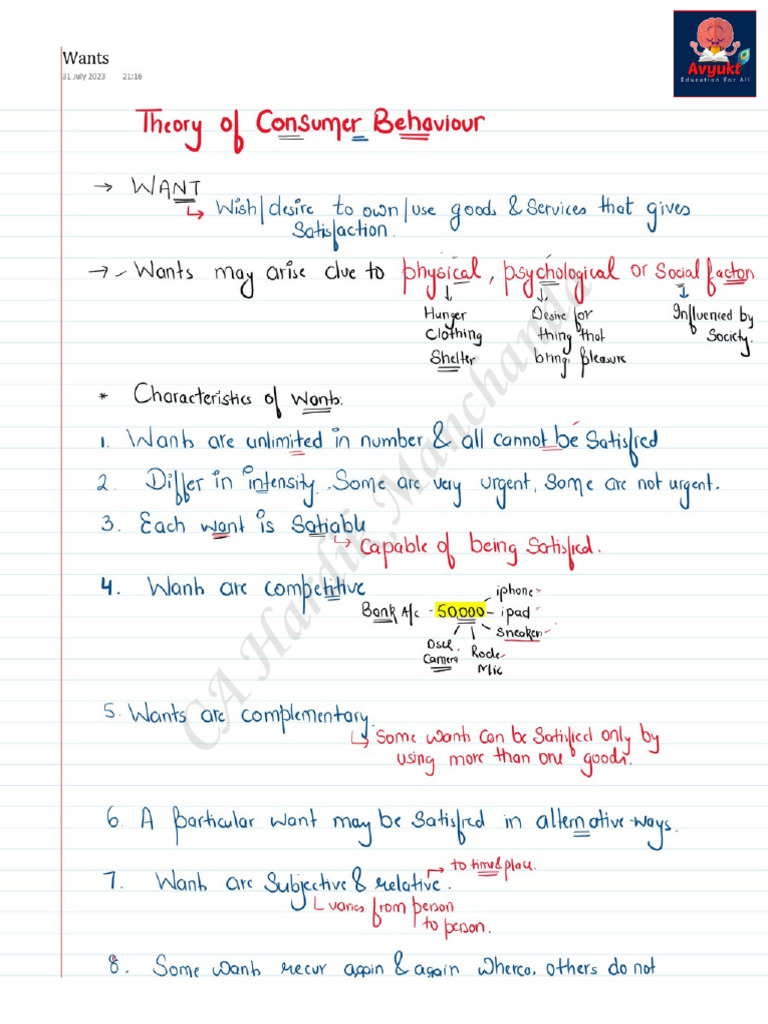 Avyukt
Education For All
Wants
31 July 2023 21:16
Theory of Consumer Behaviour
→ WANT
↳ Wish/desire to own/use goods & services that gives
Satisfaction.
→ Wants may arise due to physical, psychological or social factors
↓ Hunger
Clothing
Shelter
↓ Desire for
thing that
bring pleasure
↓ Influenced by
Society.
* Characteristics of wants.
1. Wants are unlimited in number & all cannot be satisfied
2. Differ in intensity. Some are very urgent, some are not urgent.
3. Each want is Satiable
↳ Capable of being satisfied.
4. Wants are competitive
Bank A/c - 50,000 - iphone
ipad
Sneaker
DSLR
Camera
Rode
Mic
5. Wants are complementary.
↳ Some want can be satisfied only by
using more than one goods.
6. A particular want may be satisfied in alternative ways.
7. Wants are subjective & relative.
→ to time & place.
varies from person
to person.
8. Some wants recur again & again whereas others do not
CA Hardik Manchanda